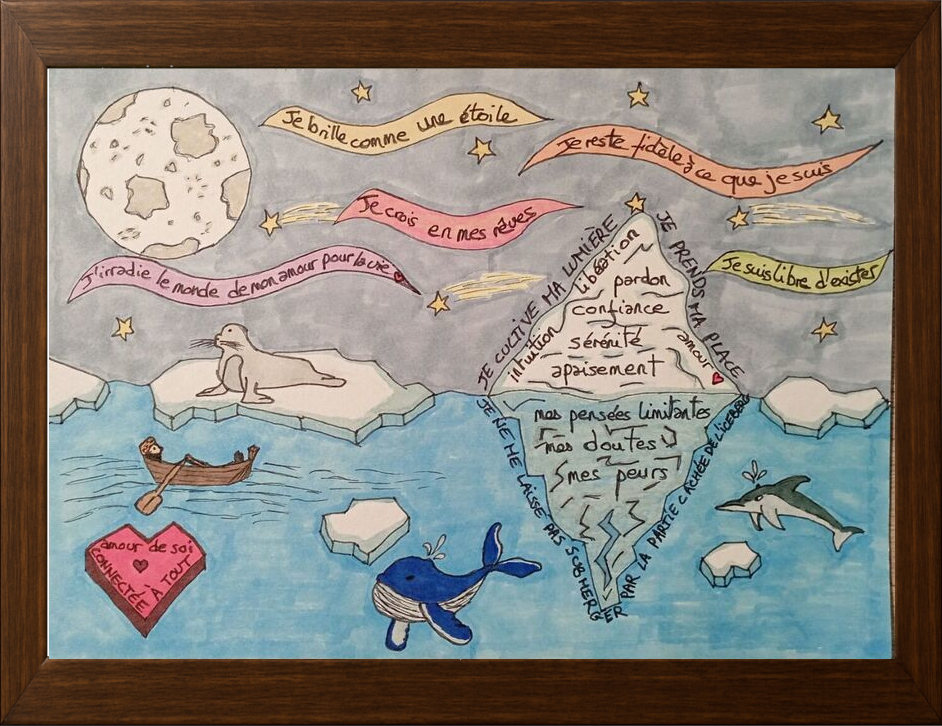 Je brille comme une étoile
Je reste fidèle à ce que je suis
Je crois en mes rêves
J'irradie le monde de mon amour pour la vie
Je suis libre d'exister
JE CULTIVE MA LUMIÈRE
JE PRENDS MA PLACE
libération
pardon
confiance
intuition
sérénité
amour
apaisement
mes pensées limitantes
mes doutes
mes peurs
JE NE ME LAISSE PAS SUBMERGER
PAR LA PARTIE CACHÉE DE L'ICEBERG
amour de soi
CONNECTÉE À TOUT